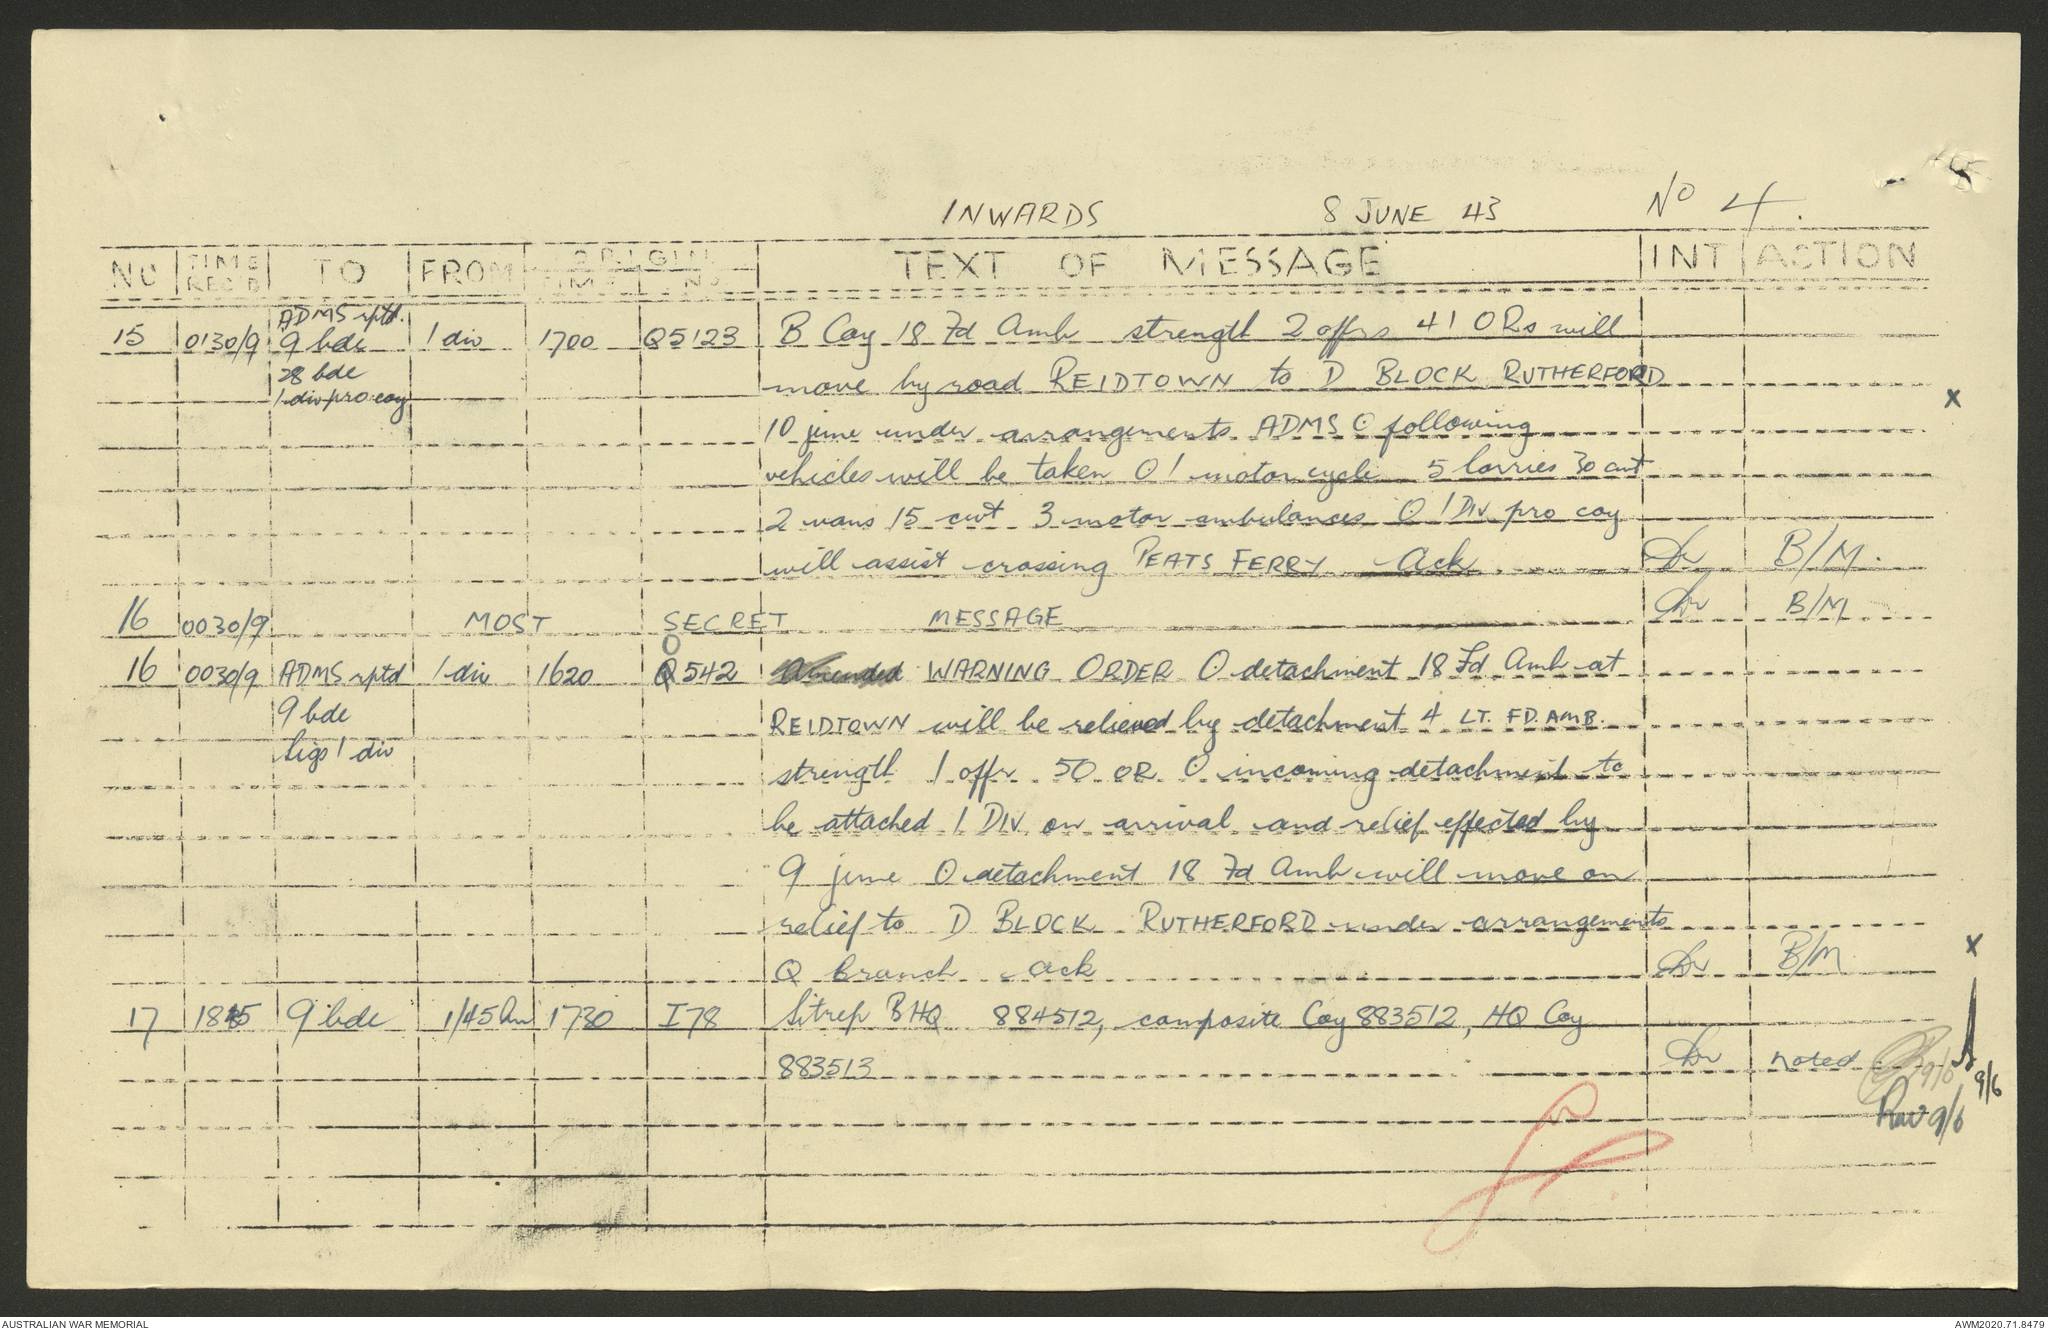 INWARDS 8 JUNE 43 No 4.
NO TIME REC'D TO FROM ORIGIN TIME NO TEXT OF MESSAGE INT ACTION
15 0130/9 ADMS rptd. 9 bde 28 bde 1 div pro coy 1 div 1700 Q5123 B Coy 18 Fd Amb strength 2 offrs 41 ORs will
move by road REIDTOWN to D BLOCK RUTHERFORD
10 june under arrangements ADMS O following
vehicles will be taken O 1 motor cycle 5 lorries 30 cwt
2 vans 15 cwt 3 motor ambulances O 1 DIV pro coy
will assist crossing PEATS FERRY Ack B/M.
16 0030/9 MOST SECRET MESSAGE B/M
16 0030/9 ADMS rptd 9 bde sigs 1 div 1 div 1620 O Q542 Amended WARNING ORDER O detachment 18 Fd Amb at
REIDTOWN will be relieved by detachment 4 LT. FD. AMB.
strength 1 offr 50 OR O incoming detachment to
be attached 1 DIV on arrival and relief effected by
9 june O detachment 18 Fd Amb will move on
relief to D BLOCK RUTHERFORD under arrangements
Q Branch ack B/M
17 1845 9 bde 1/45 Bn 1730 I78 Sitrep BHQ 884512, composite Coy 883512, HQ Coy
883513 noted 9/6
9/6
9/6
AUSTRALIAN WAR MEMORIAL AWM2020.71.8479